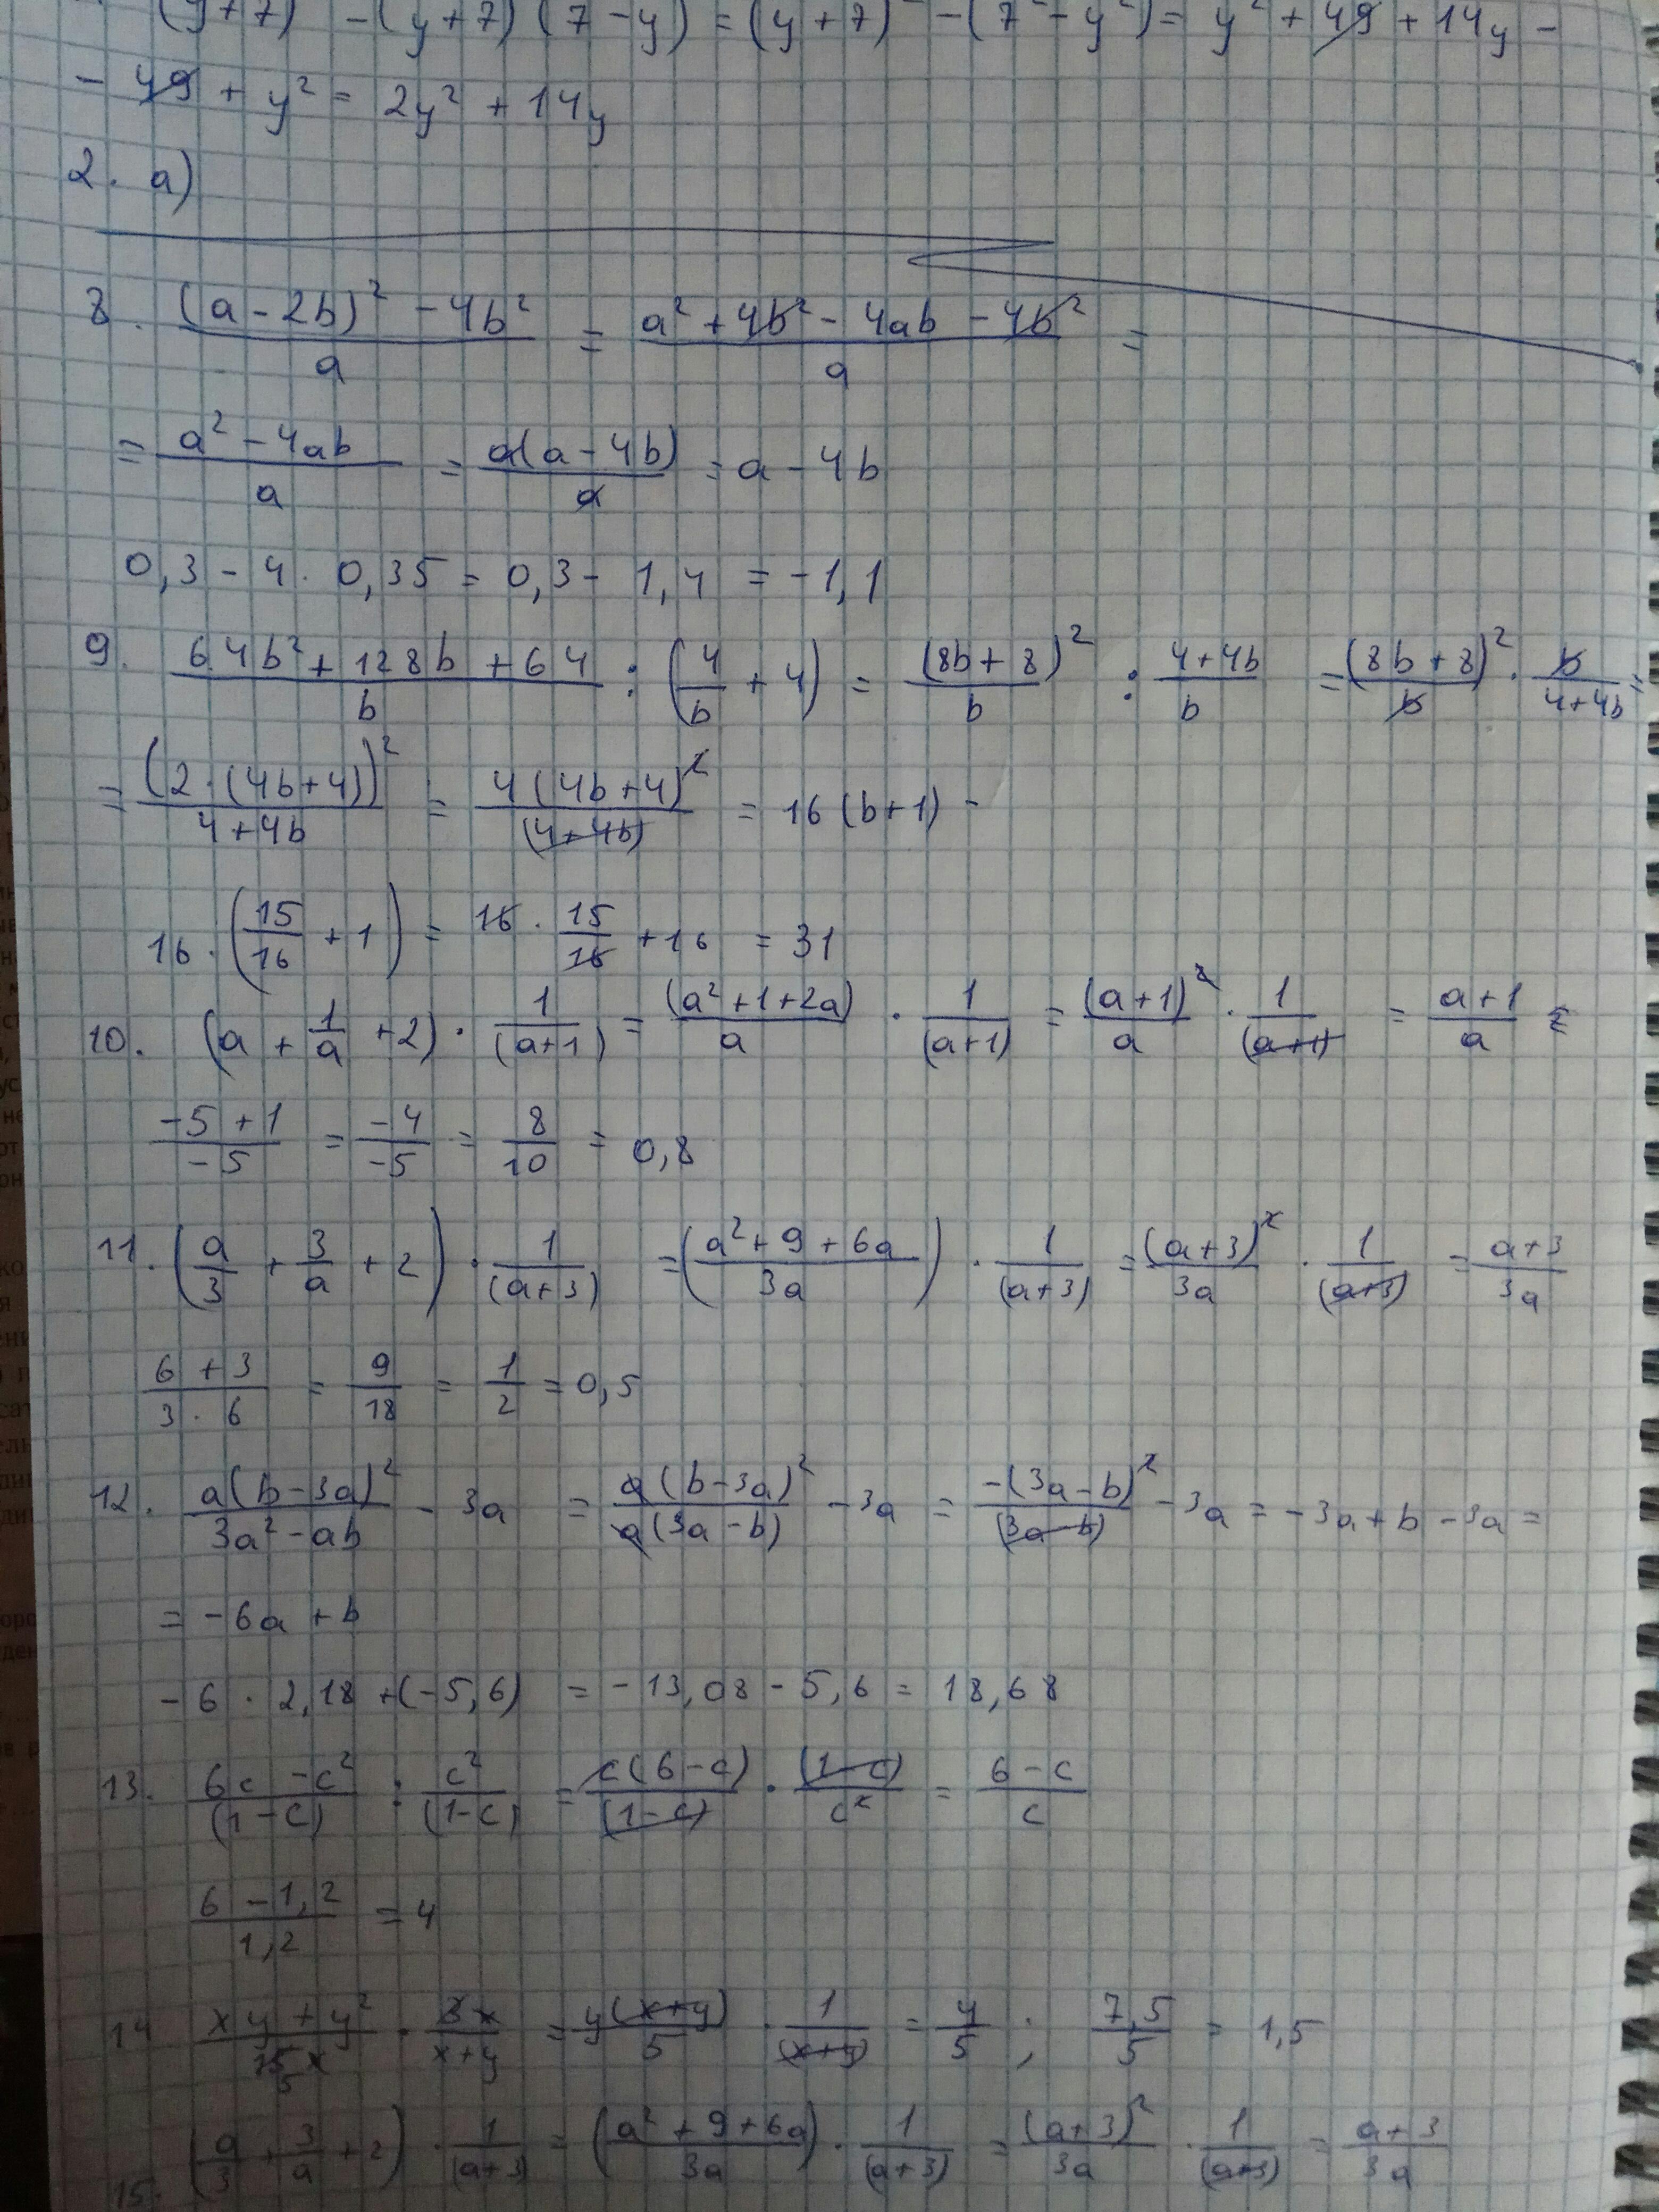 (y+7)² - (y+7)(7-y) = (y+7)² - (7² - y²) = y² + 49 + 14y -
- 49 + y² = 2y² + 14y
2. a)
8. ((a-2b)² - 4b²)/a = (a² + 4b² - 4ab - 4b²)/a =
= (a² - 4ab)/a = a(a-4b)/a = a - 4b
0,3 - 4 · 0,35 = 0,3 - 1,4 = -1,1
9. (64b² + 128b + 64)/b : (4/b + 4) = (8b+8)²/b : (4+4b)/b = (8b+8)²/b · b/(4+4b) =
= (2·(4b+4))²/(4+4b) = 4(4b+4)²/(4+4b) = 16(b+1) -
16 · (15/16 + 1) = 16 · 15/16 + 16 = 31
10. (a + 1/a + 2) · 1/(a+1) = (a²+1+2a)/a · 1/(a+1) = (a+1)²/a · 1/(a+1) = (a+1)/a =
(-5+1)/-5 = -4/-5 = 8/10 = 0,8
11. (a/3 + 3/a + 2) · 1/(a+3) = ((a²+9+6a)/3a) · 1/(a+3) = (a+3)²/3a · 1/(a+3) = (a+3)/3a
(6+3)/(3·6) = 9/18 = 1/2 = 0,5
12. a(b-3a)²/(3a²-ab) - 3a = a(b-3a)²/a(3a-b) - 3a = -(3a-b)²/(3a-b) - 3a = -3a+b - 3a =
= -6a + b
-6 · 2,18 + (-5,6) = -13,08 - 5,6 = 18,68
13. (6c - c²)/(1-c) : c²/(1-c) = c(6-c)/(1-c) · (1-c)/c² = (6-c)/c
(6-1,2)/1,2 = 4
14 (xy + y²)/15x · 3x/(x+y) = y(x+y)/5 · 1/(x+y) = y/5 ; 7,5/5 = 1,5
15. (a/3 + 3/a + 2) · 1/(a+3) = ((a²+9+6a)/3a) · 1/(a+3) = (a+3)²/3a · 1/(a+3) = (a+3)/3a